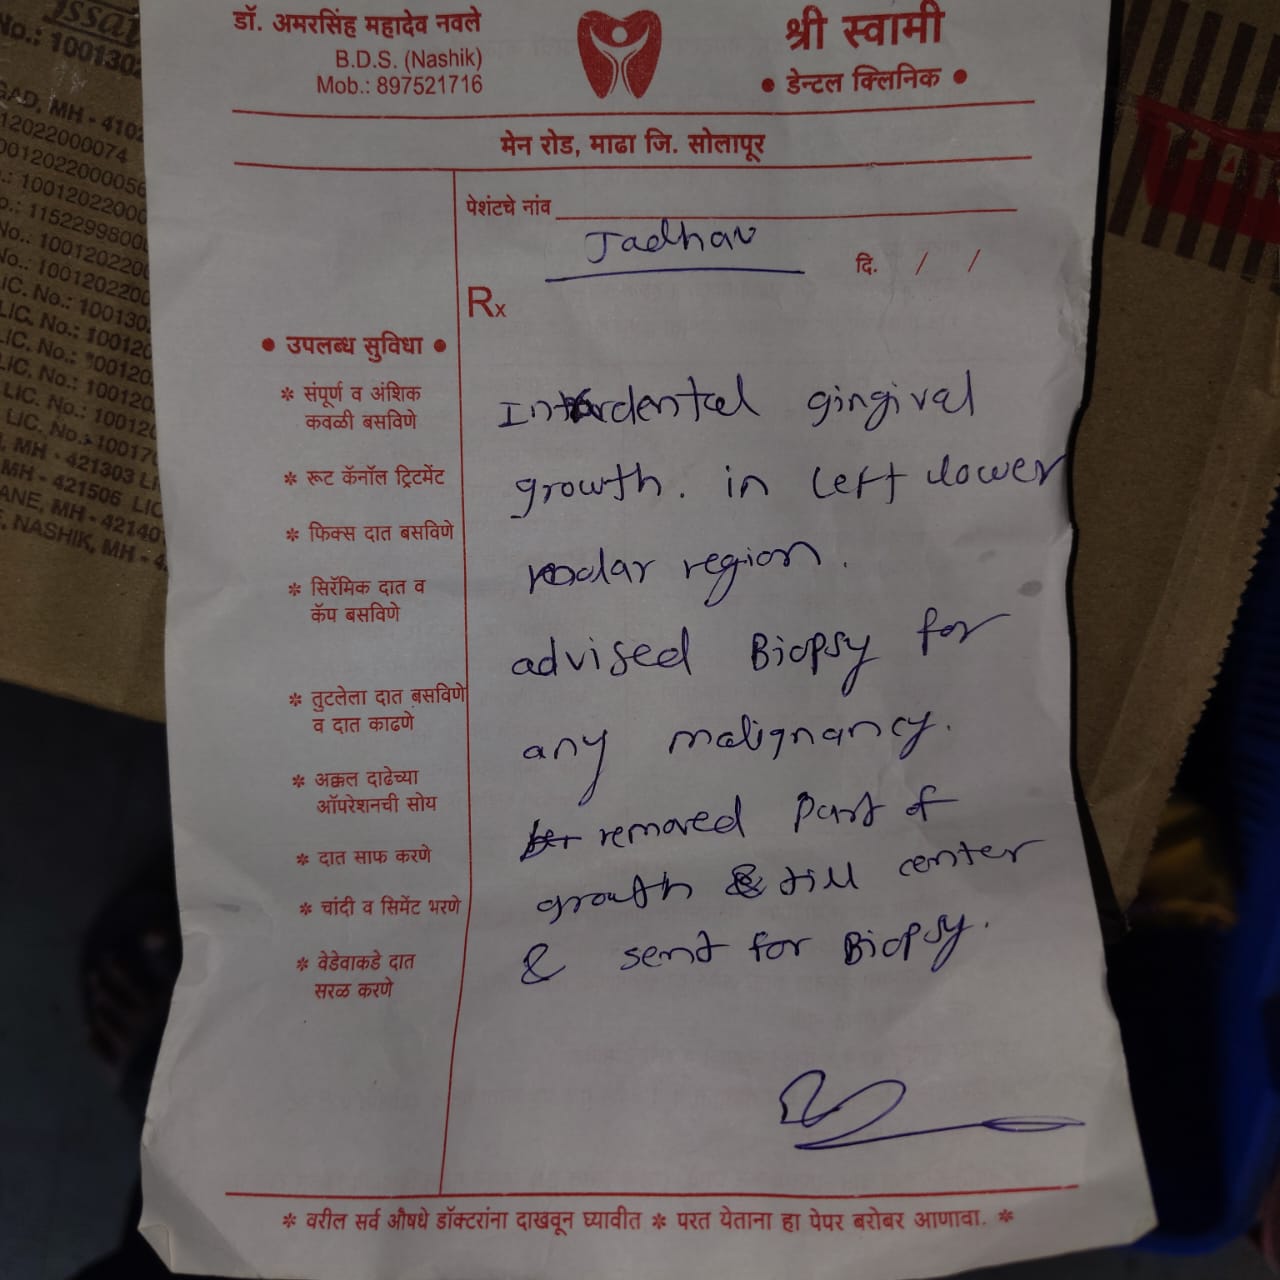 डॉ. अमरसिंह महादेव नवले
B.D.S. (Nashik)
Mob.: 897521716
श्री स्वामी
• डेन्टल क्लिनिक •
मेन रोड, माढा जि. सोलापूर
पेशंटचे नांव
Jadhav
दि. / /
Rx
• उपलब्ध सुविधा •
* संपूर्ण व अंशिक
कवळी बसविणे
* रूट कॅनॉल ट्रिटमेंट
* फिक्स दात बसविणे
* सिरॅमिक दात व
कॅप बसविणे
* तुटलेला दात बसविणे
व दात काढणे
* अक्कल दाढेच्या
ऑपरेशनची सोय
* दात साफ करणे
* चांदी व सिमेंट भरणे
* वेडेवाकडे दात
सरळ करणे
Interdental gingival
growth. in left lower
molar region.
advised Biopsy for
any malignancy.
removed part of
growth till center
& sent for Biopsy.
* वरील सर्व औषधे डॉक्टरांना दाखवून घ्यावीत * परत येताना हा पेपर बरोबर आणावा. *
issa
No.: 100130
GAD, MH - 410
12022000074
0012022000056
.: 10012022000
o.: 1152299800
No.. 100120220
No.: 100120220
IC. No.: 100130
LIC. No.: 100120
LIC. No.: 100120
LIC. No.: 100120
LIC. No.: 10017
, MH - 421303 LI
MH - 421506 LIC
ANE, MH - 42140
, NASHIK, MH - 4